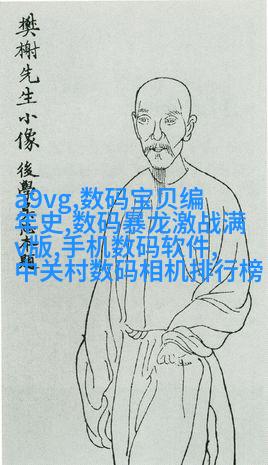 樊榭先生小像
後學
a9vg,数码宝贝编
年史,数码暴龙激战满
v版,手机数码软件,
中关村数码相机排行榜